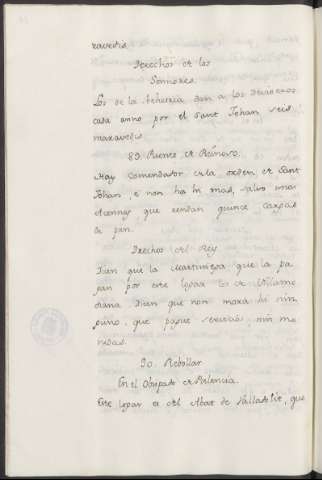 ravedis.
Derechos de los
Sennores.
Los de la behetria dan a los Devisseros
cada anno por el Sant Johan seis
maravedis.
89. Puente de Reinoso.
Hay Comendador de la orden de Sant
Johan, e non ha hi mas, salvo unas
que rendan quince cargas
de pan.
Derechos del Rey
Dizen que la Martiniega que la pa
gan por este logar los de Villame
diana. Dicen que non mora hi nin
guno, que pague servicios, nin mo
nedas.
90. Rebollar.
En el Obispado de Palencia.
Este logar es del Abat de Valladolit, que